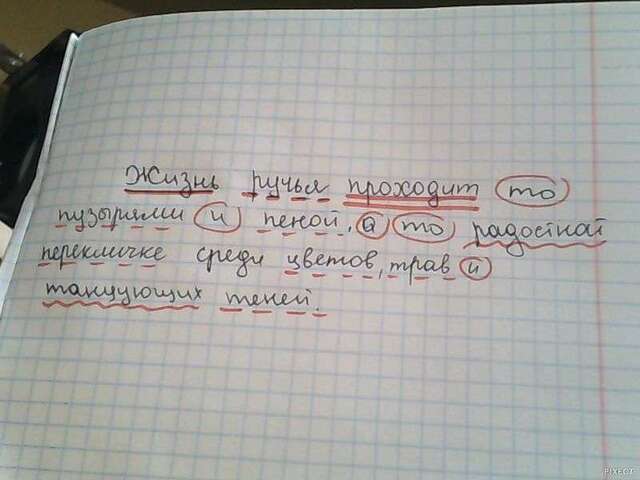 Жизнь ручья проходит то
пузырями и пеной, а то радостной
перекличке среди цветов, трав и
танцующих теней.
PIXECT